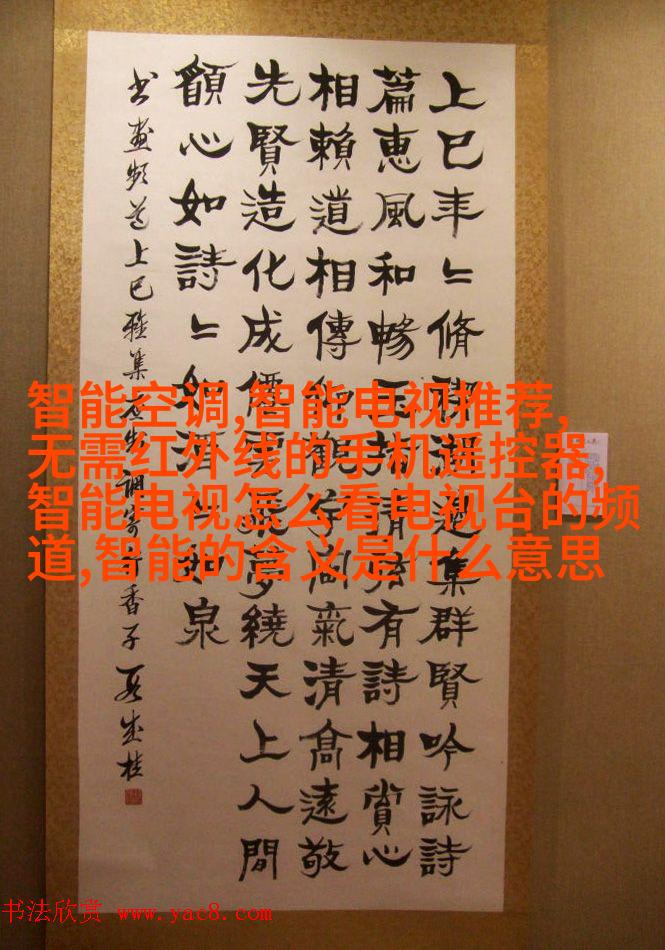 上巳年〻脩禊集群賢吟詠詩
篇惠風和暢清有詩相賞心
相賴道相傳仰觀氣清高遠敬
先賢造化成僊夢繞天上人間
願心如詩〻如酒如泉
书画频道上巳雅集调寄香子
智能空调,智能电视推荐,
无需红外线的手机遥控器,
智能电视怎么看电视台的频
道,智能的含义是什么意思
书法欣赏 www.yac8.com